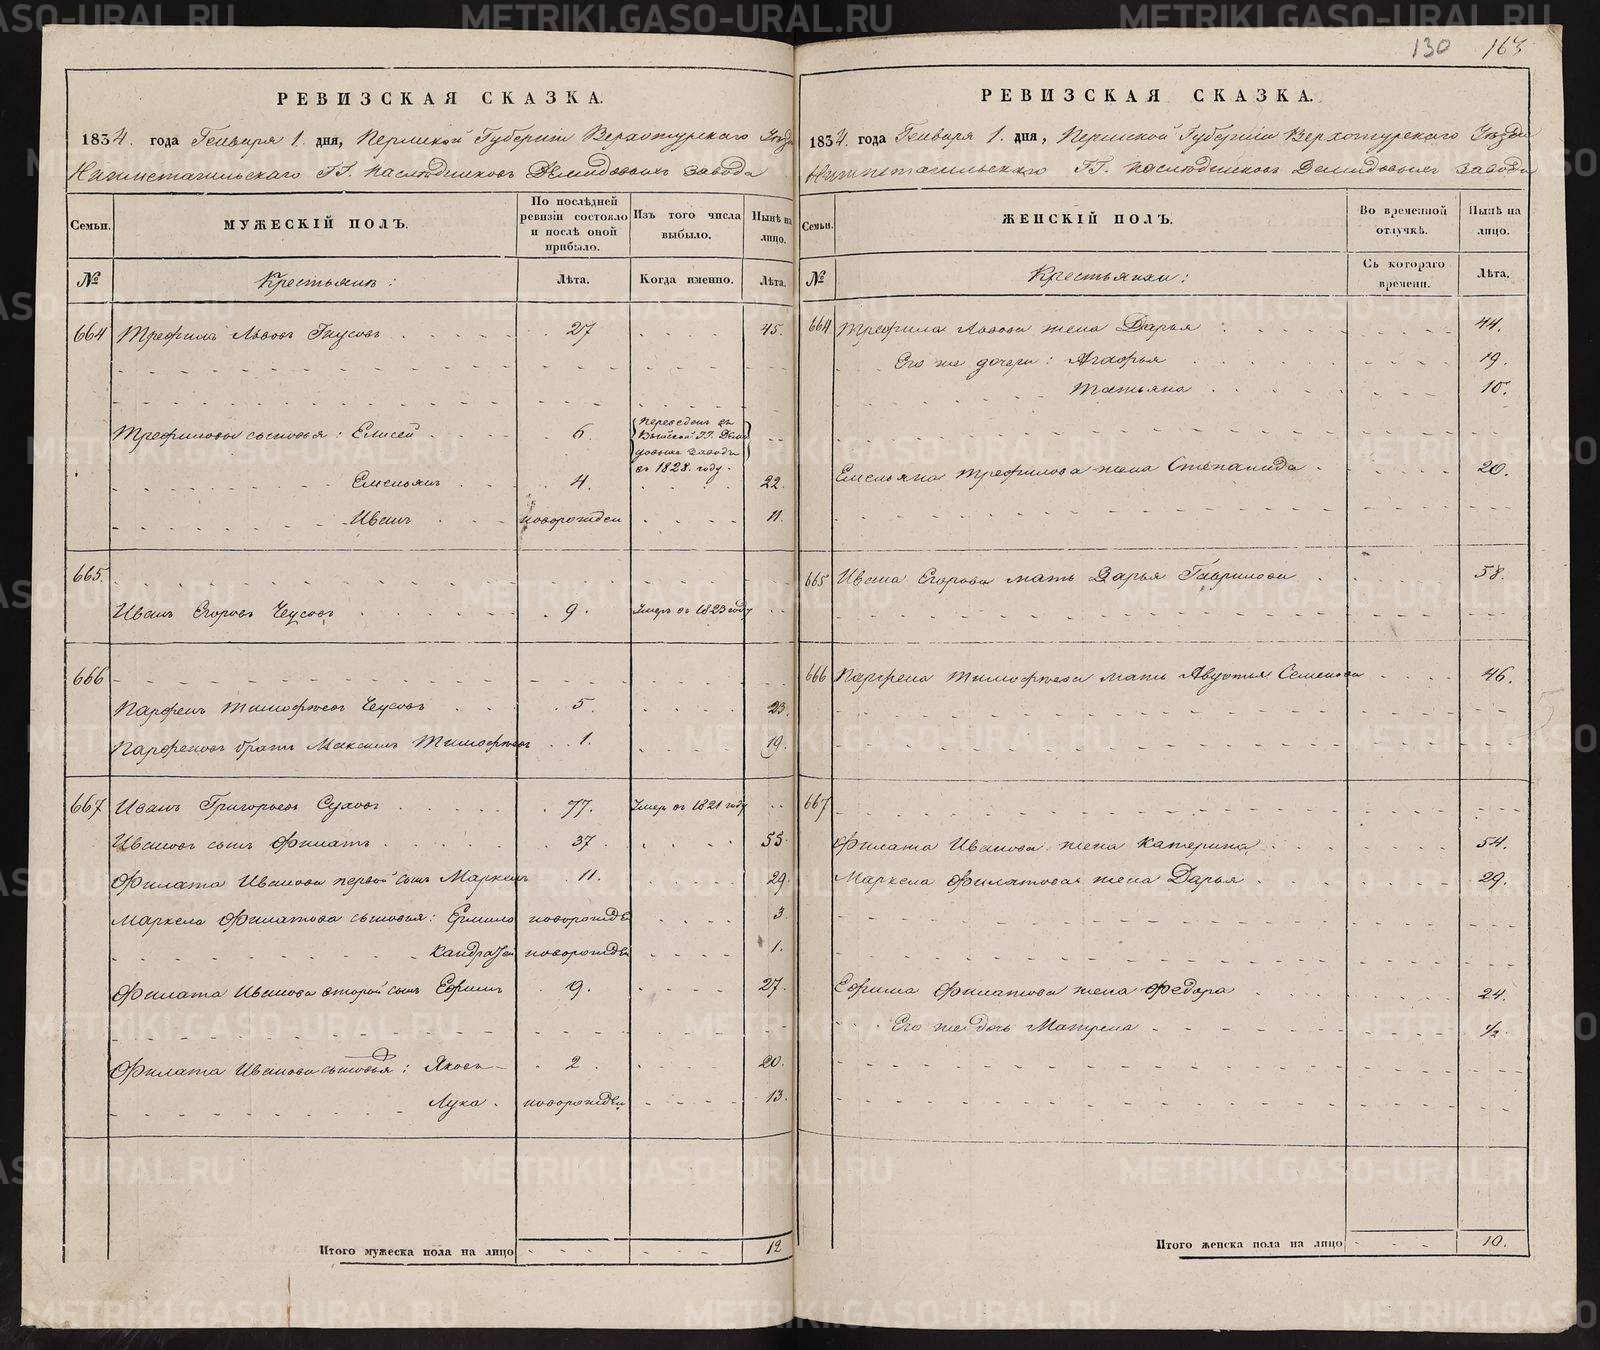 130 163
РЕВИЗСКАЯ СКАЗКА.
1834. года Генваря 1. дня, Пермской Губернiи Верхотурскаго Уѣзда
Нижнетагильскаго ГГ. наслѣдниковъ Демидовыхъ завода
Семьи.
МУЖЕСКІЙ ПОЛЪ.
По послѣдней ревизіи состояло и послѣ оной прибыло.
Изъ того числа выбыло.
Нынѣ на лицо.
№
Крестьянъ:
Лѣта.
Когда именно.
Лѣта.
664 Трефилъ Львовъ Гнусовъ 27 45.
Трефиловы сыновья: Елисей 6. Переведенъ въ Выйской ГГ. Демидовыхъ заводъ въ 1828. году.
Емельянъ 4. 22.
Иванъ новорожден 11.
665.
Иванъ Егоровъ Чусовъ 9. Умеръ въ 1823 году
666
Парфенъ Тимофѣевъ Чусовъ 5. 23.
Парфеновъ братъ Максимъ Тимофѣевъ 1. 19.
667 Иванъ Григорьевъ Суховъ 77. Умеръ въ 1821 году
Ивановъ сынъ Филатъ 37 55.
Филата Иванова первой сынъ Маркелъ 11. 29.
Маркела Филатова сыновья: Ермило новорожде 3.
Кандратей новорожде 1.
Филата Иванова второй сынъ Ефимъ 9. 27.
Филата Иванова сыновья: Яковъ 2 20.
Лука новорожден 13.
Итого мужеска пола на лицо 12
РЕВИЗСКАЯ СКАЗКА.
1834. года Генваря 1. дня, Пермской Губернiи Верхотурскаго Уѣзда
Нижнетагильскаго ГГ. наслѣдниковъ Демидовыхъ завода
Семьи.
ЖЕНСКІЙ ПОЛЪ.
Во временной отлучкѣ.
Нынѣ на лицо.
№
Крестьянки:
Съ котораго времени.
Лѣта.
664 Трефила Львова жена Дарья 44.
Его же дочери: Агафья 19.
Татьяна 10.
Емельяна Трефилова жена Степанида 20.
665 Ивана Егорова мать Дарья Гаврилова 58.
666 Парфена Тимофѣева мать Авдотья Семенова 46.
667
Филата Иванова жена Катерина 54.
Маркела Филатова жена Дарья 29.
Ефима Филатова жена Федора 24.
Его же дочь Матрена 1/2.
Итого женска пола на лицо 10.
METRIKI.GASO-URAL.RU